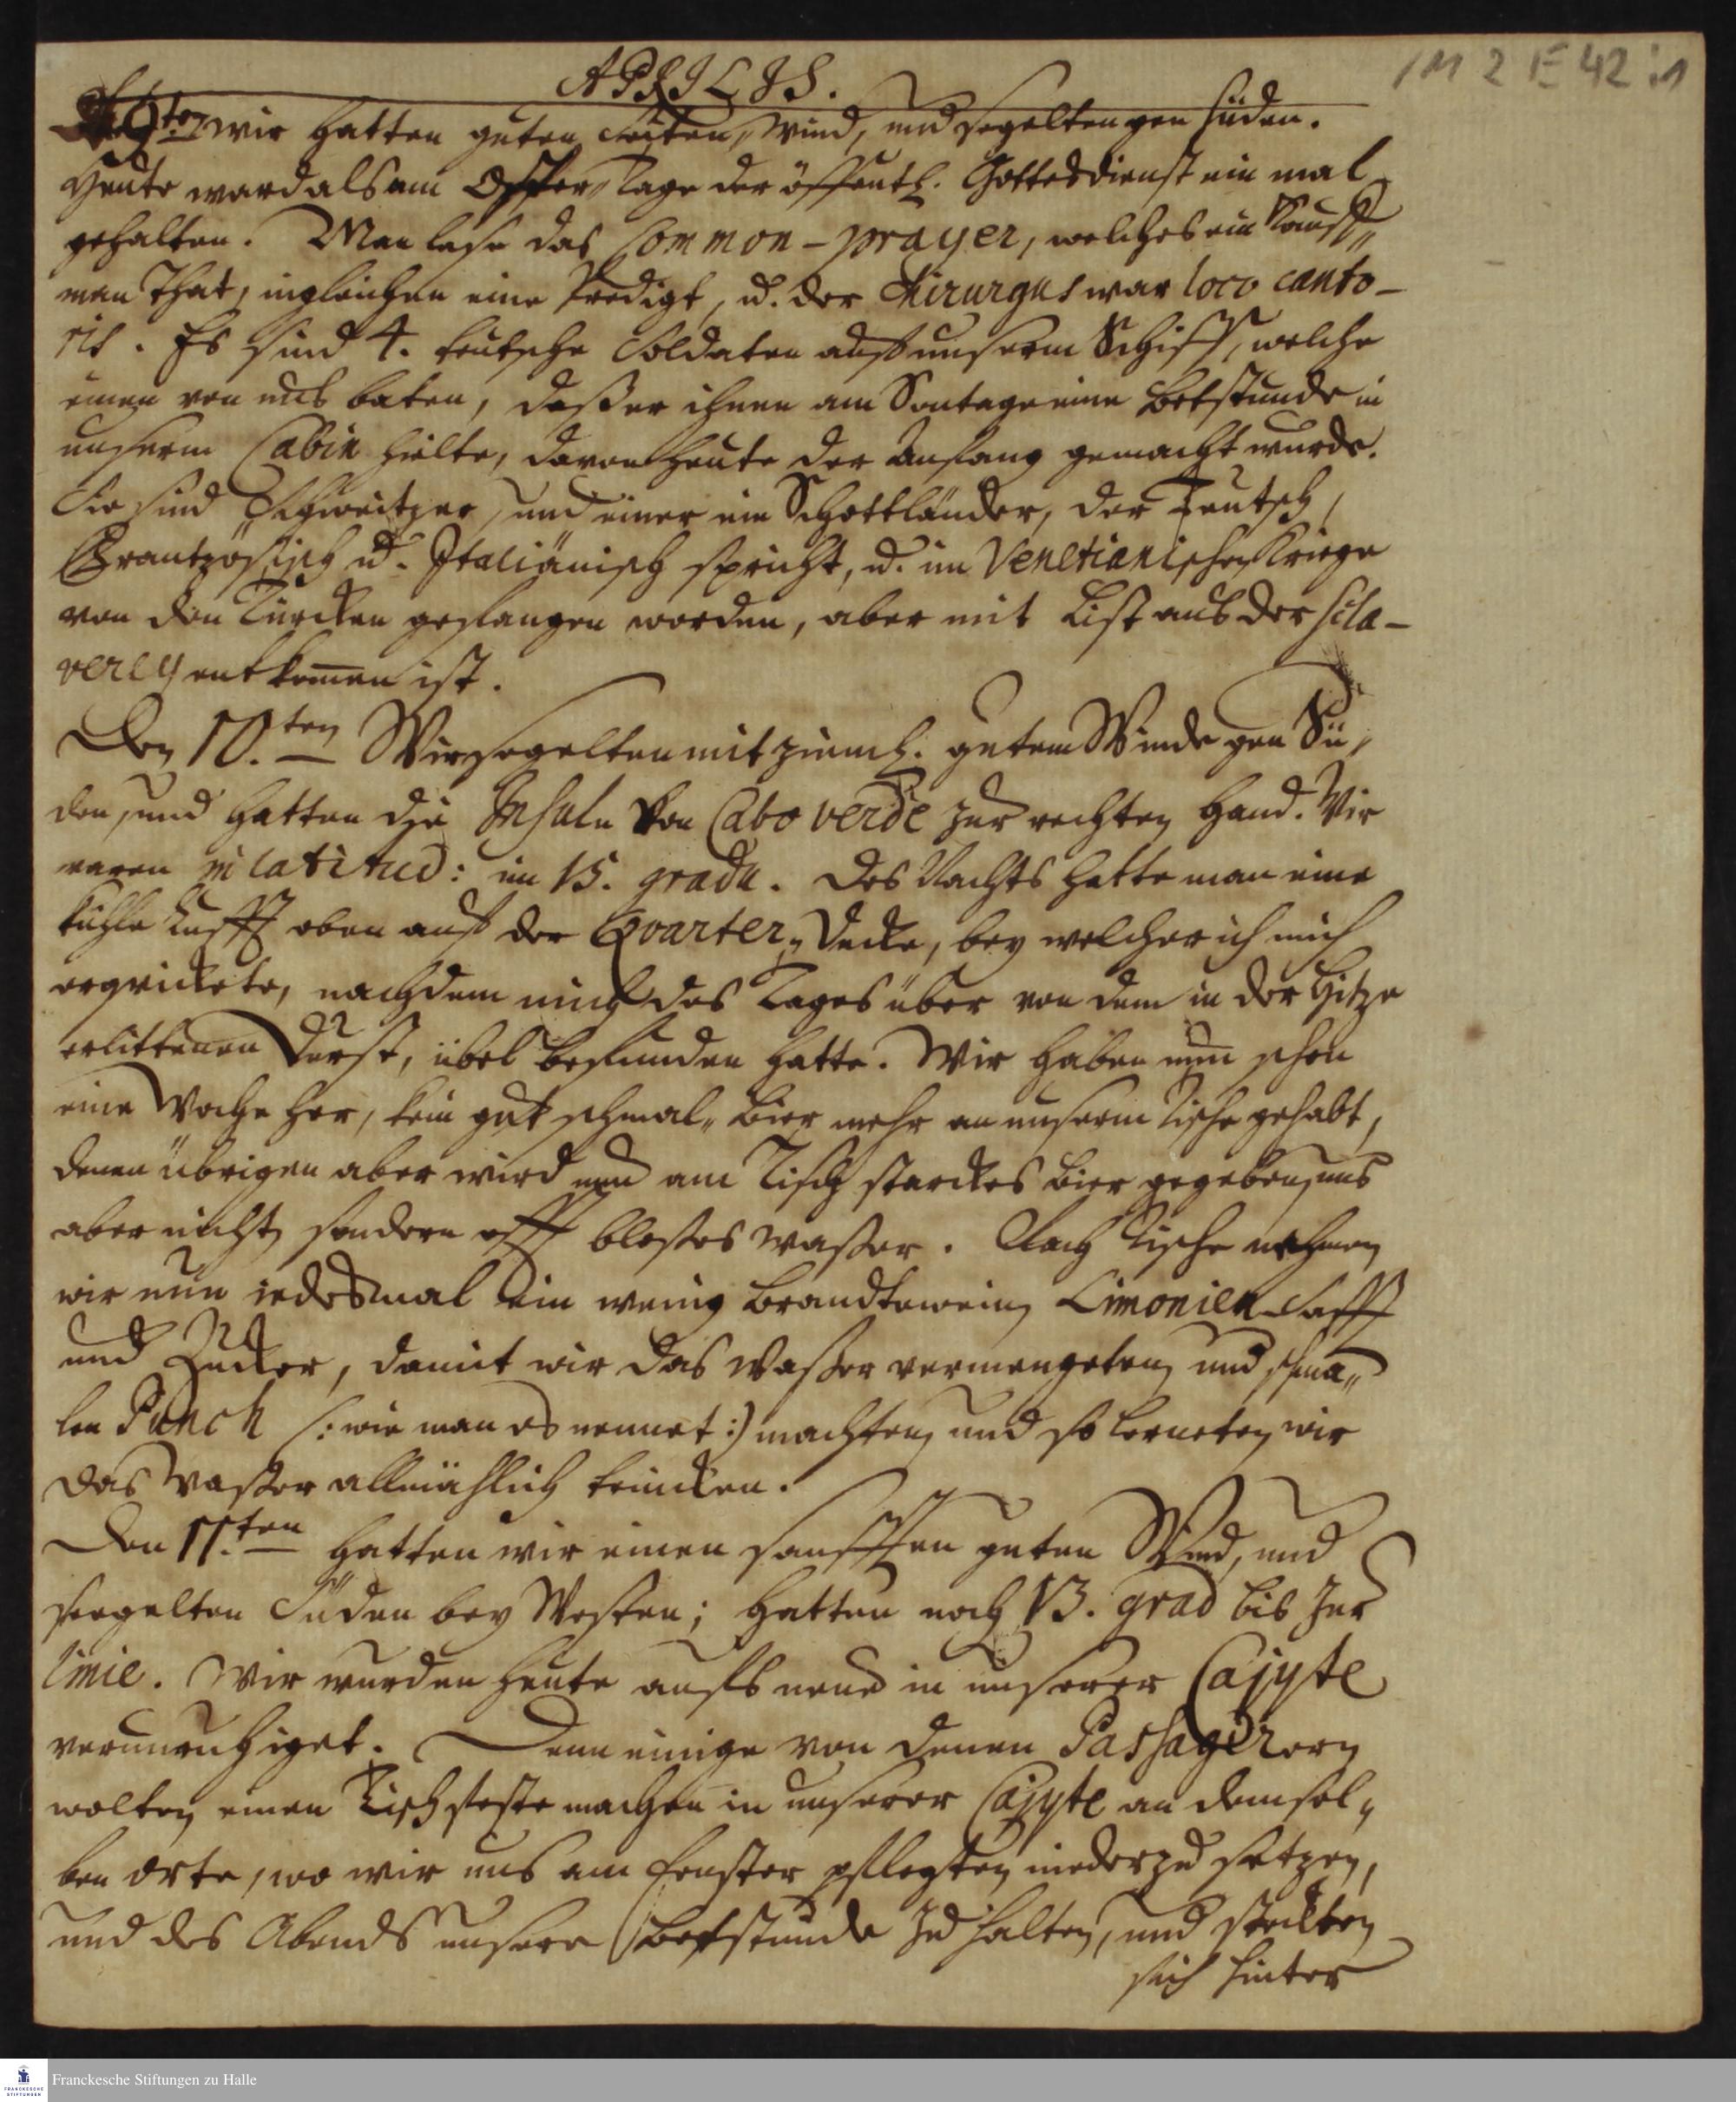 APRILIS.
1 M 2 E 42 : 1
9ten wir hatten guten Seiten-Wind, und segelten gen Süden.
Heute ward als am Oster-Tage der öffentl. Gottesdienst ein mal
gehalten. Man lase das Common-prayer, welches ein Kauff-
man that, ingleichen eine Predigt, u. der Chirurgus war loco canto-
ris. Es sind 4. teutsche Soldaten auf unserm Schiff, welche
einen von uns baten, daß er ihnen am Sontage eine Betstunde in
unserm Cabin hielte, davon heute der Anfang gemacht wurde.
Sie sind Schweitzer, und einer ein Schottländer, der Teutsch,
Frantzösisch u. Italiänisch spricht, u. im Venetianischen Kriege
von den Türcken gefangen worden, aber mit List aus der Scla-
verey entkomen ist.
Den 10.ten Wir segelten mit zieml. gutem Winde gen Sü-
den, und hatten die Insuln von Cabo verde zur rechten Hand. Wir
waren in latitud: im 15. gradu. Des Nachts hatte man eine
kühle Lufft oben auf der Qvarter-Decke, bey welcher ich mich
erqvickete, nachdem mich des Tages über von dem in der Hitze
erlittenen Durst, übel befunden hatte. Wir haben nun schon
eine Woche her, kein gut schmal-Bier mehr an unserm Tische gehabt,
denen übrigen aber wird nun am Tisch starckes Bier gegeben, uns
aber nicht, sondern offt blosses Wasser. Nach Tische nehmen
wir nun iedesmal ein wenig Brandtewein, Limonien-Safft
und Zucker, damit wir das Wasser vermengeten, und schma-
len Punch /: wie man es nennet :/ machten, und so lerneten wir
das Wasser allmählich trincken.
Den 11.ten hatten wir einen sanfften guten Wind, und
seegelten Süden bey Westen; hatten noch 13. grad bis zur
linie. Wir wurden heute aufs neue in unserer Cajyte
verunruhiget. Denn einige von denen Passagirern
wolten einen Tisch feste machen in unserer Cajyte an demsel-
ben Orte, wo wir uns am Fenster pflegten niederzu setzen,
und des Abends unsere Betstunde zu halten, und steckten
sich hinter
Franckesche Stiftungen zu Halle
FRANCKESCHE STIFTUNGEN